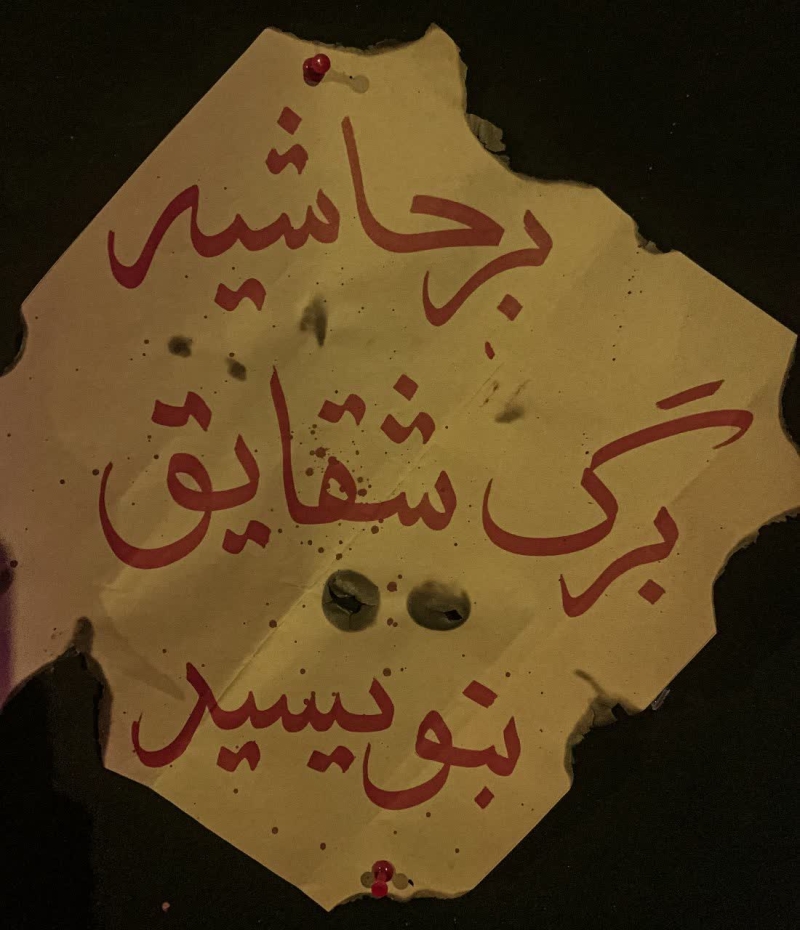 برحاشیه
برگ شقایق
بنویسید